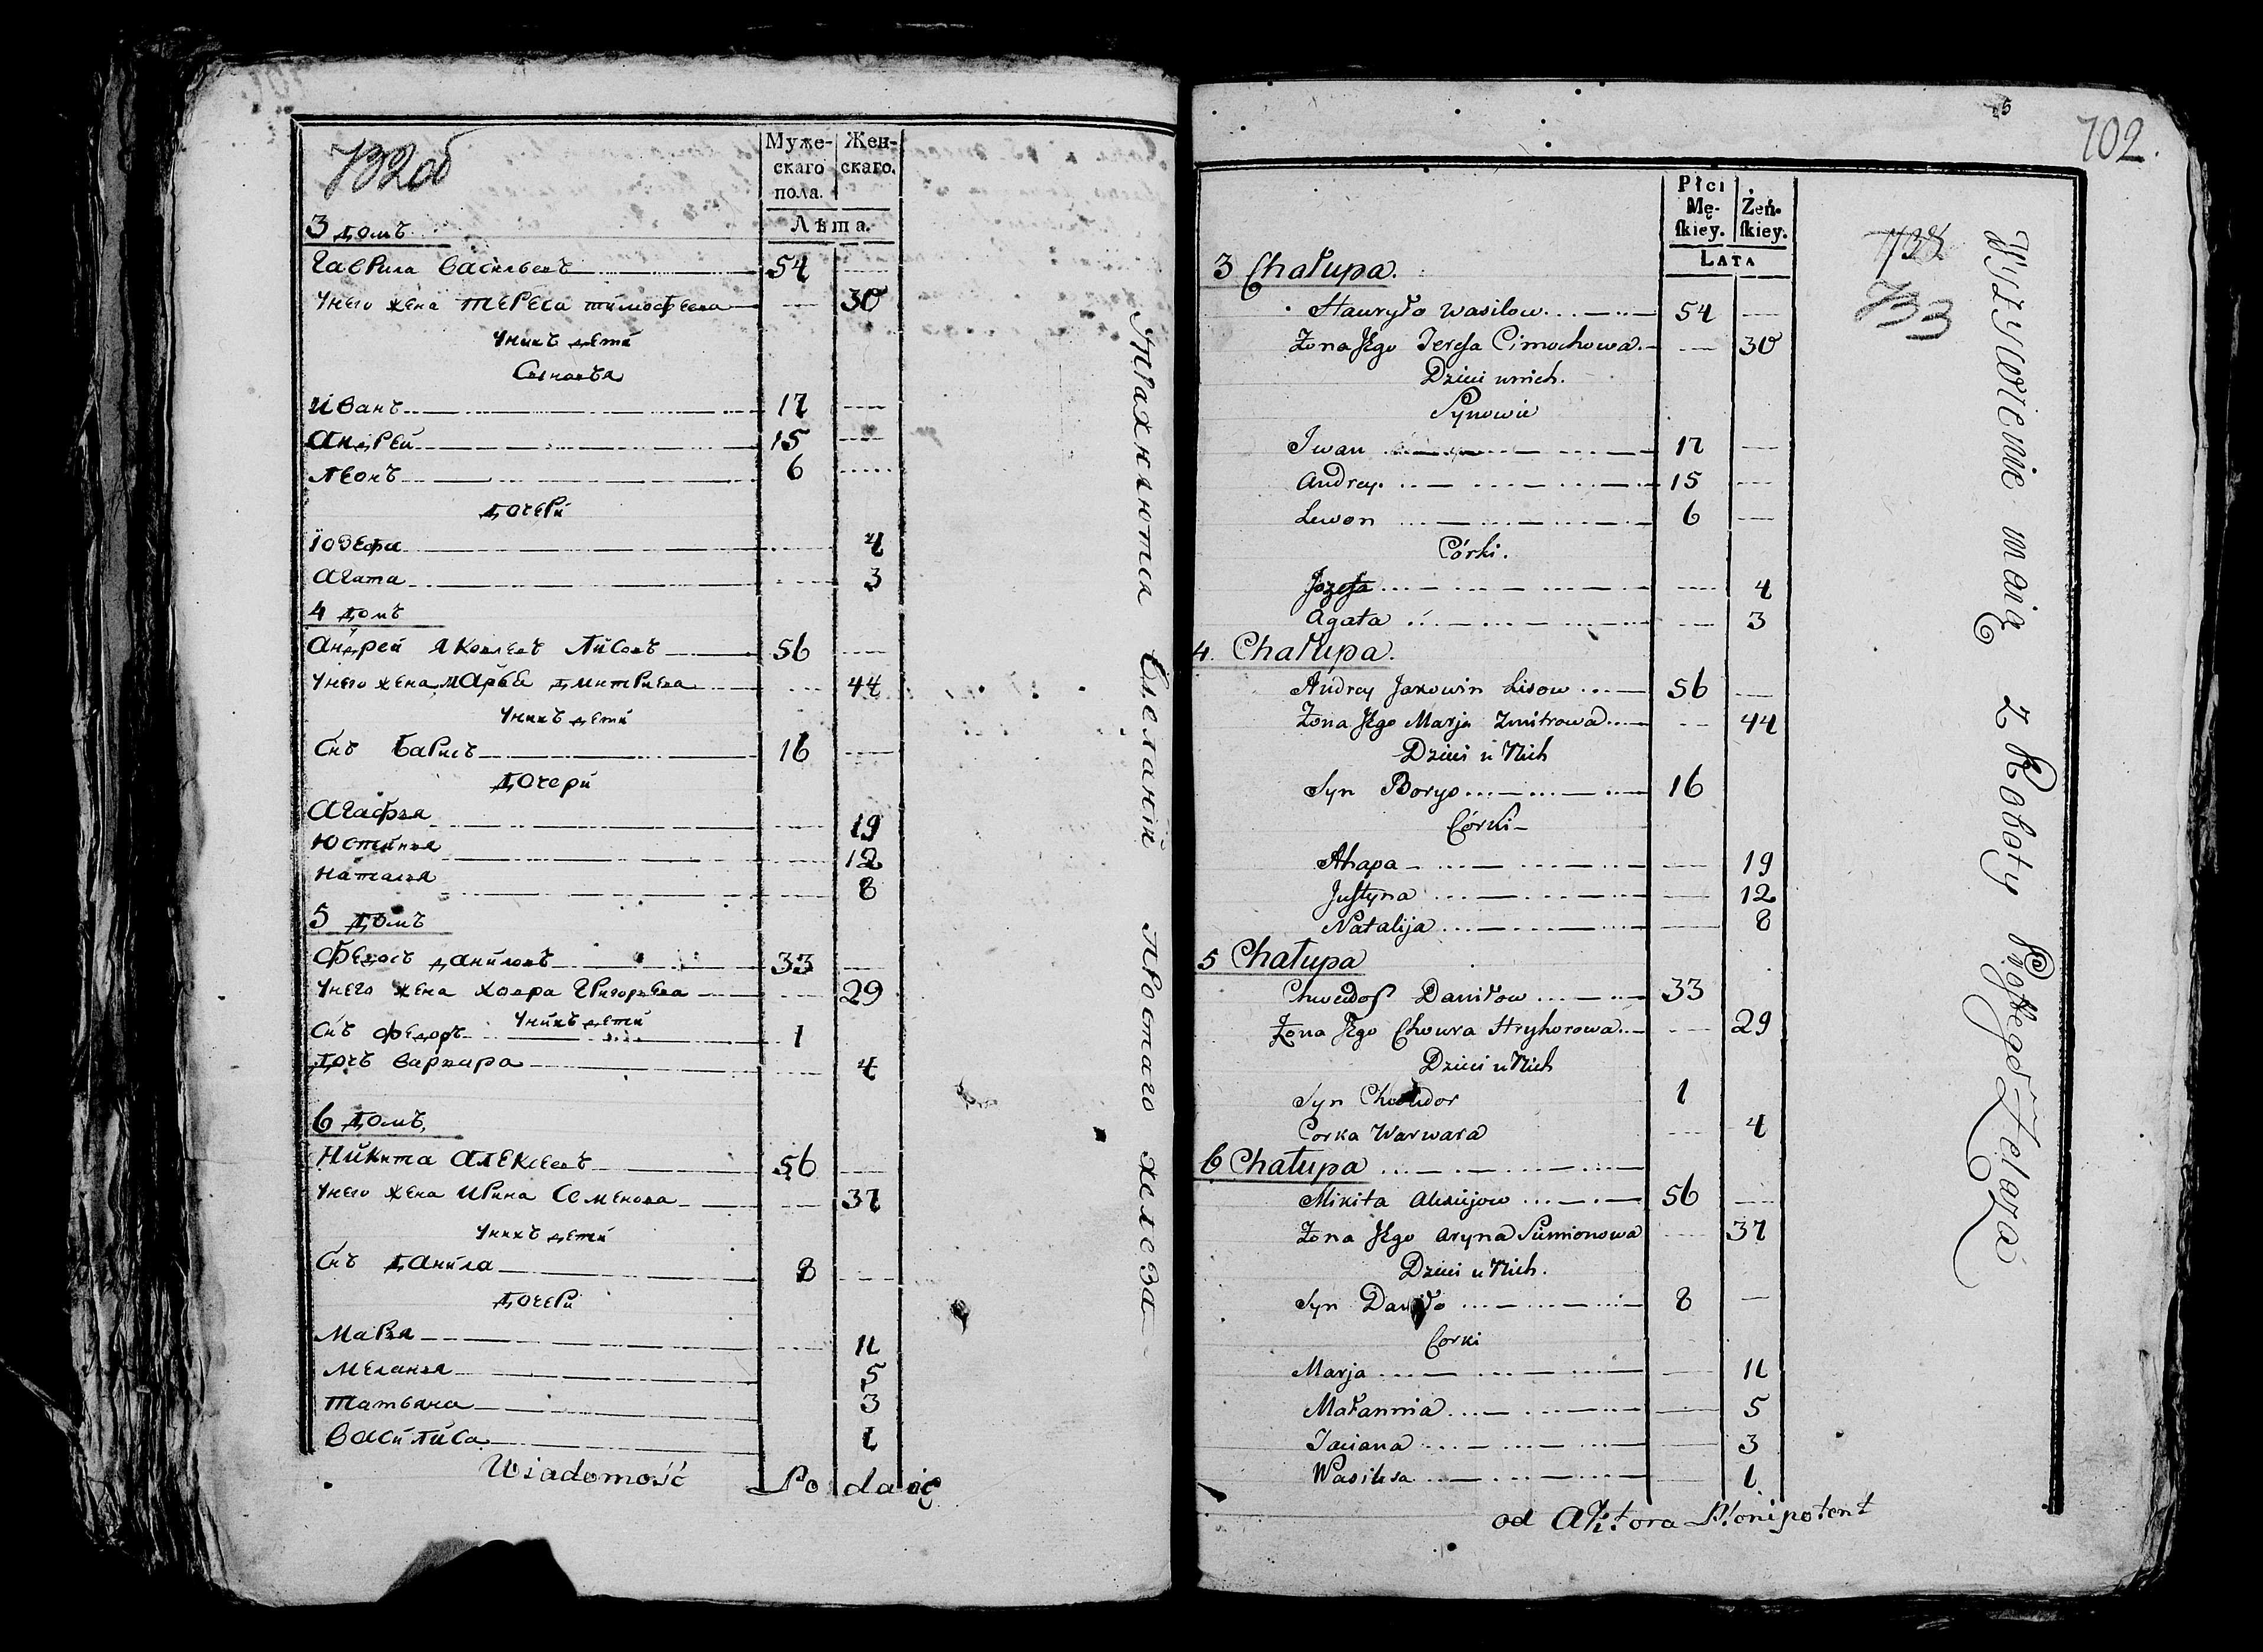 732об
Муже-
скаго
пола.
Жен-
скаго.
Лѣта.
3 домъ
Гаврила Васильевъ 54
Унего жена Тереса Тимофеева 30
Унихъ дети
Сыновья
Иванъ 17
Андрей 15
Леонъ 6
Дочери
Юзефа 4
Агата 3
4 домъ
Андрей Яковлевъ Лисовъ 56
Унего жена Марья Дмитриева 44
Унихъ дети
Снъ Барисъ 16
Дочери
Агафья 19
Юстинья 12
Наталья 8
5 домъ
Федосъ Даниловъ 33
Унего жена Ховра Григорьева 29
Унихъ дети
Снъ Федоръ 1
Дочь Варвара 4
6 домъ
Никита Алексеевъ 56
Унего жена Ирина Семенова 37
Унихъ дети
Снъ Данила 8
Дочери
Марья 11
Меланья 5
Татьяна 3
Василиса 1
Wiadomość Podaię
простаго железа
702.
733
Płci
Mę-
skiey.
Żeń-
skiey.
LATA
3 Chałupa.
Hauryło Wasilow 54
Żona Jego Teresa Cimochowa 30
Dzieci unich.
Synowie
Iwan 17
Andrey 15
Lewon 6
Córki.
Jozefa 4
Agata 3
4. Chałupa.
Andrey Jakowin Lisow 56
Żona Jego Marja Zmitrowa 44
Dzieci u Nich
Syn Borys 16
Córki
Ahapa 19
Justyna 12
Natalija 8
5 Chałupa
Chwedos Daniłow 33
Żona Jego Chowra Hryhorowa 29
Dzieci u Nich
Syn Chwedor 1
Corka Warwara 4
6 Chałupa
Mikita Alexiejow 56
Żona Jego Aryna Siemionowa 37
Dzieci u Nich.
Syn Daniło 8
Corki
Marja 11
Małannia 5
Taciana 3
Wasilisa 1
od Aktora Plenipotent
Wyżywienie maią z Roboty Prostego Żelaza